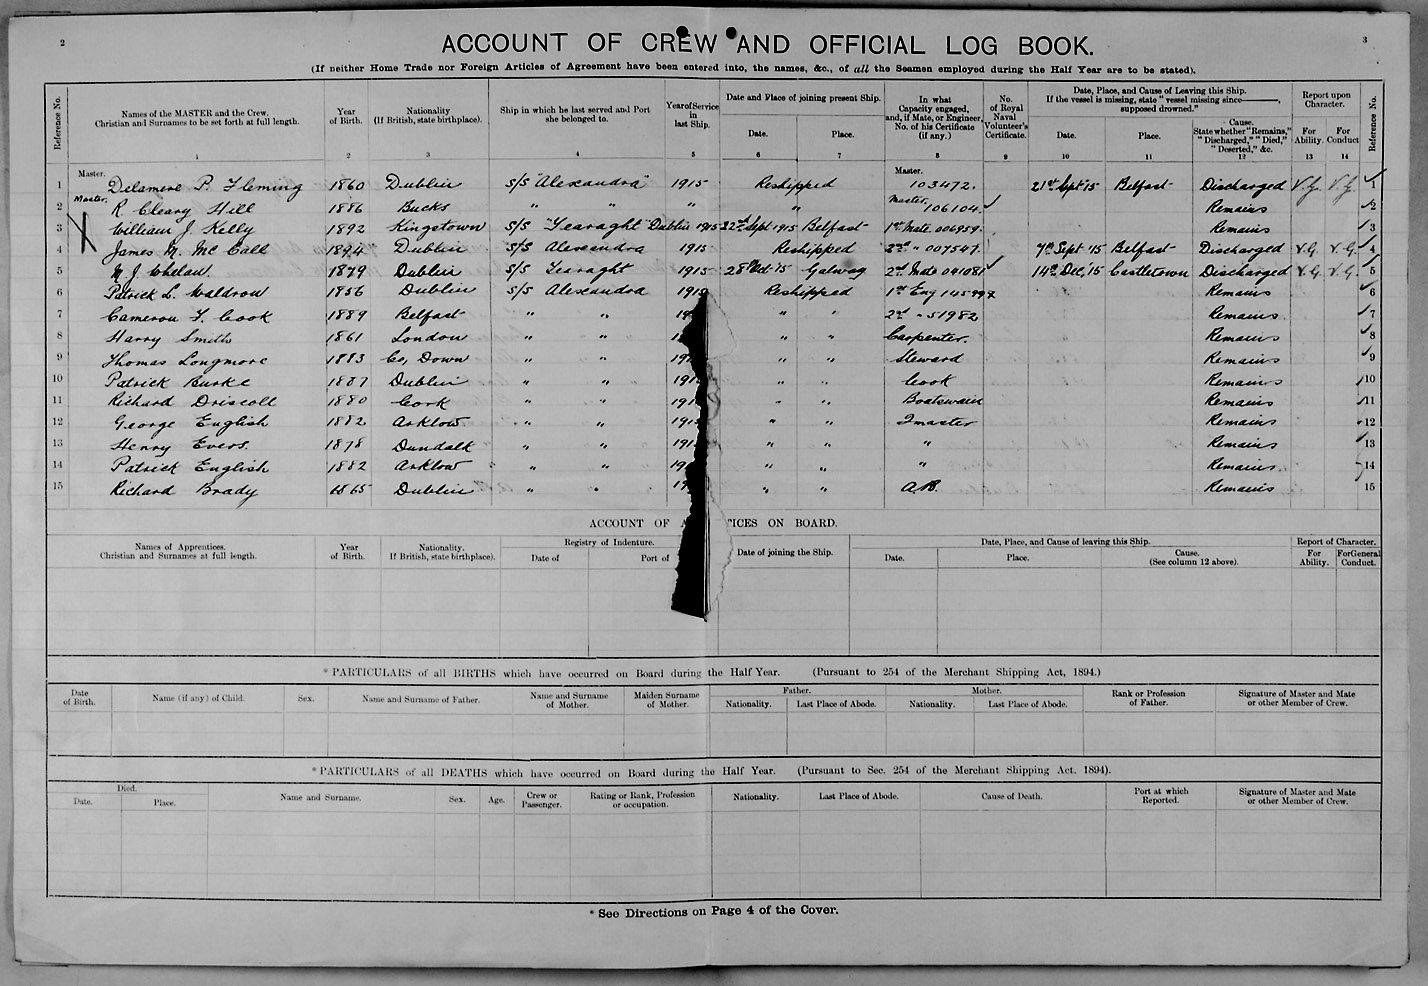 2
3
ACCOUNT OF CREW AND OFFICIAL LOG BOOK.
(If neither Home Trade nor Foreign Articles of Agreement have been entered into, the names, &c., of all the Seamen employed during the Half Year are to be stated).
Reference No.
Names of the MASTER and the Crew, Christian and Surnames to be set forth at full length.
Year of Birth.
Nationality (If British, state birthplace).
Ship in which he last served and Port she belonged to.
Year of Service in last Ship.
Date and Place of joining present Ship.
Date.
Place.
In what Capacity engaged, and, if Mate, or Engineer, No. of his Certificate (if any.)
No. of Royal Naval Volunteer's Certificate.
Date, Place, and Cause of Leaving this Ship.
If the vessel is missing, state "vessel missing since———, supposed drowned."
Date.
Place.
Cause. State whether "Remains," "Discharged," "Died," "Deserted," &c.
Report upon Character.
For Ability.
For Conduct
Reference No.
1 2 3 4 5 6 7 8 9 10 11 12 13 14
Master.
Master.
1 Delamere P. Fleming 1860 Dublin s/s "Alexandra" 1915 Reshipped 103472. 21st Sept '15 Belfast Discharged V.G. V.G. 1
Master.
Master.
2 R Cleary Hill 1886 Bucks " " " " 106104. Remains 2
3 William J. Kelly 1892 Kingstown s/s "Tearaght" Dublin 1915 22nd Sept 1915 Belfast 1st Mate. 006959. Remains 3
4 James M. Mc Call 1894 Dublin s/s Alexandra 1915 Reshipped 2nd " 007547. 7th Sept '15 Belfast Discharged V.G. V.G. 4
5 N J. Whelan 1879 Dublin s/s Tearaght 1915 28th Oct '15 Galway 2nd Mate 041081 14th Dec, '15 Castletown Discharged V.G. V.G. 5
6 Patrick L. Waldron 1856 Dublin s/s Alexandra 191 Reshipped 1st Eng 145992 Remains 6
7 Cameron T. Cook 1889 Belfast " " 19 " " 2nd " 51982 Remains 7
8 Harry Smith 1861 London " " 1 " " Carpenter. Remains 8
9 Thomas Longmore 1883 Co, Down " " 191 " " Steward Remains 9
10 Patrick Burke 1887 Dublin " " 191 " " Cook Remains 10
11 Richard Driscoll 1880 Cork " " 191 " " Boatswain Remains 11
12 George English 1882 Arklow " " 191 " " Remains 12
13 Henry Evers. 1878 Dundalk " " 191 " " " Remains 13
14 Patrick English 1882 Arklow " " 19 " " " Remains 14
15 Richard Brady 1865 Dublin " " 19 " " A.B. Remains 15
ACCOUNT OF A TICES ON BOARD.
Names of Apprentices, Christian and Surnames at full length.
Year of Birth.
Nationality, If British, state birthplace).
Registry of Indenture.
Date of
Port of
Date of joining the Ship.
Date, Place, and Cause of leaving this Ship.
Date.
Place.
Cause. (See column 12 above).
Report of Character.
For Ability.
For General Conduct.
* PARTICULARS of all BIRTHS which have occurred on Board during the Half Year. (Pursuant to 254 of the Merchant Shipping Act, 1894.)
Date of Birth.
Name (if any) of Child.
Sex.
Name and Surname of Father.
Name and Surname of Mother.
Maiden Surname of Mother.
Father.
Nationality.
Last Place of Abode.
Mother.
Nationality.
Last Place of Abode.
Rank or Profession of Father.
Signature of Master and Mate or other Member of Crew.
* PARTICULARS of all DEATHS which have occurred on Board during the Half Year. (Pursuant to Sec. 254 of the Merchant Shipping Act, 1894).
Died.
Date.
Place.
Name and Surname.
Sex.
Age.
Crew or Passenger.
Rating or Rank, Profession or occupation.
Nationality.
Last Place of Abode.
Cause of Death.
Port at which Reported.
Signature of Master and Mate or other Member of Crew.
* See Directions on Page 4 of the Cover.